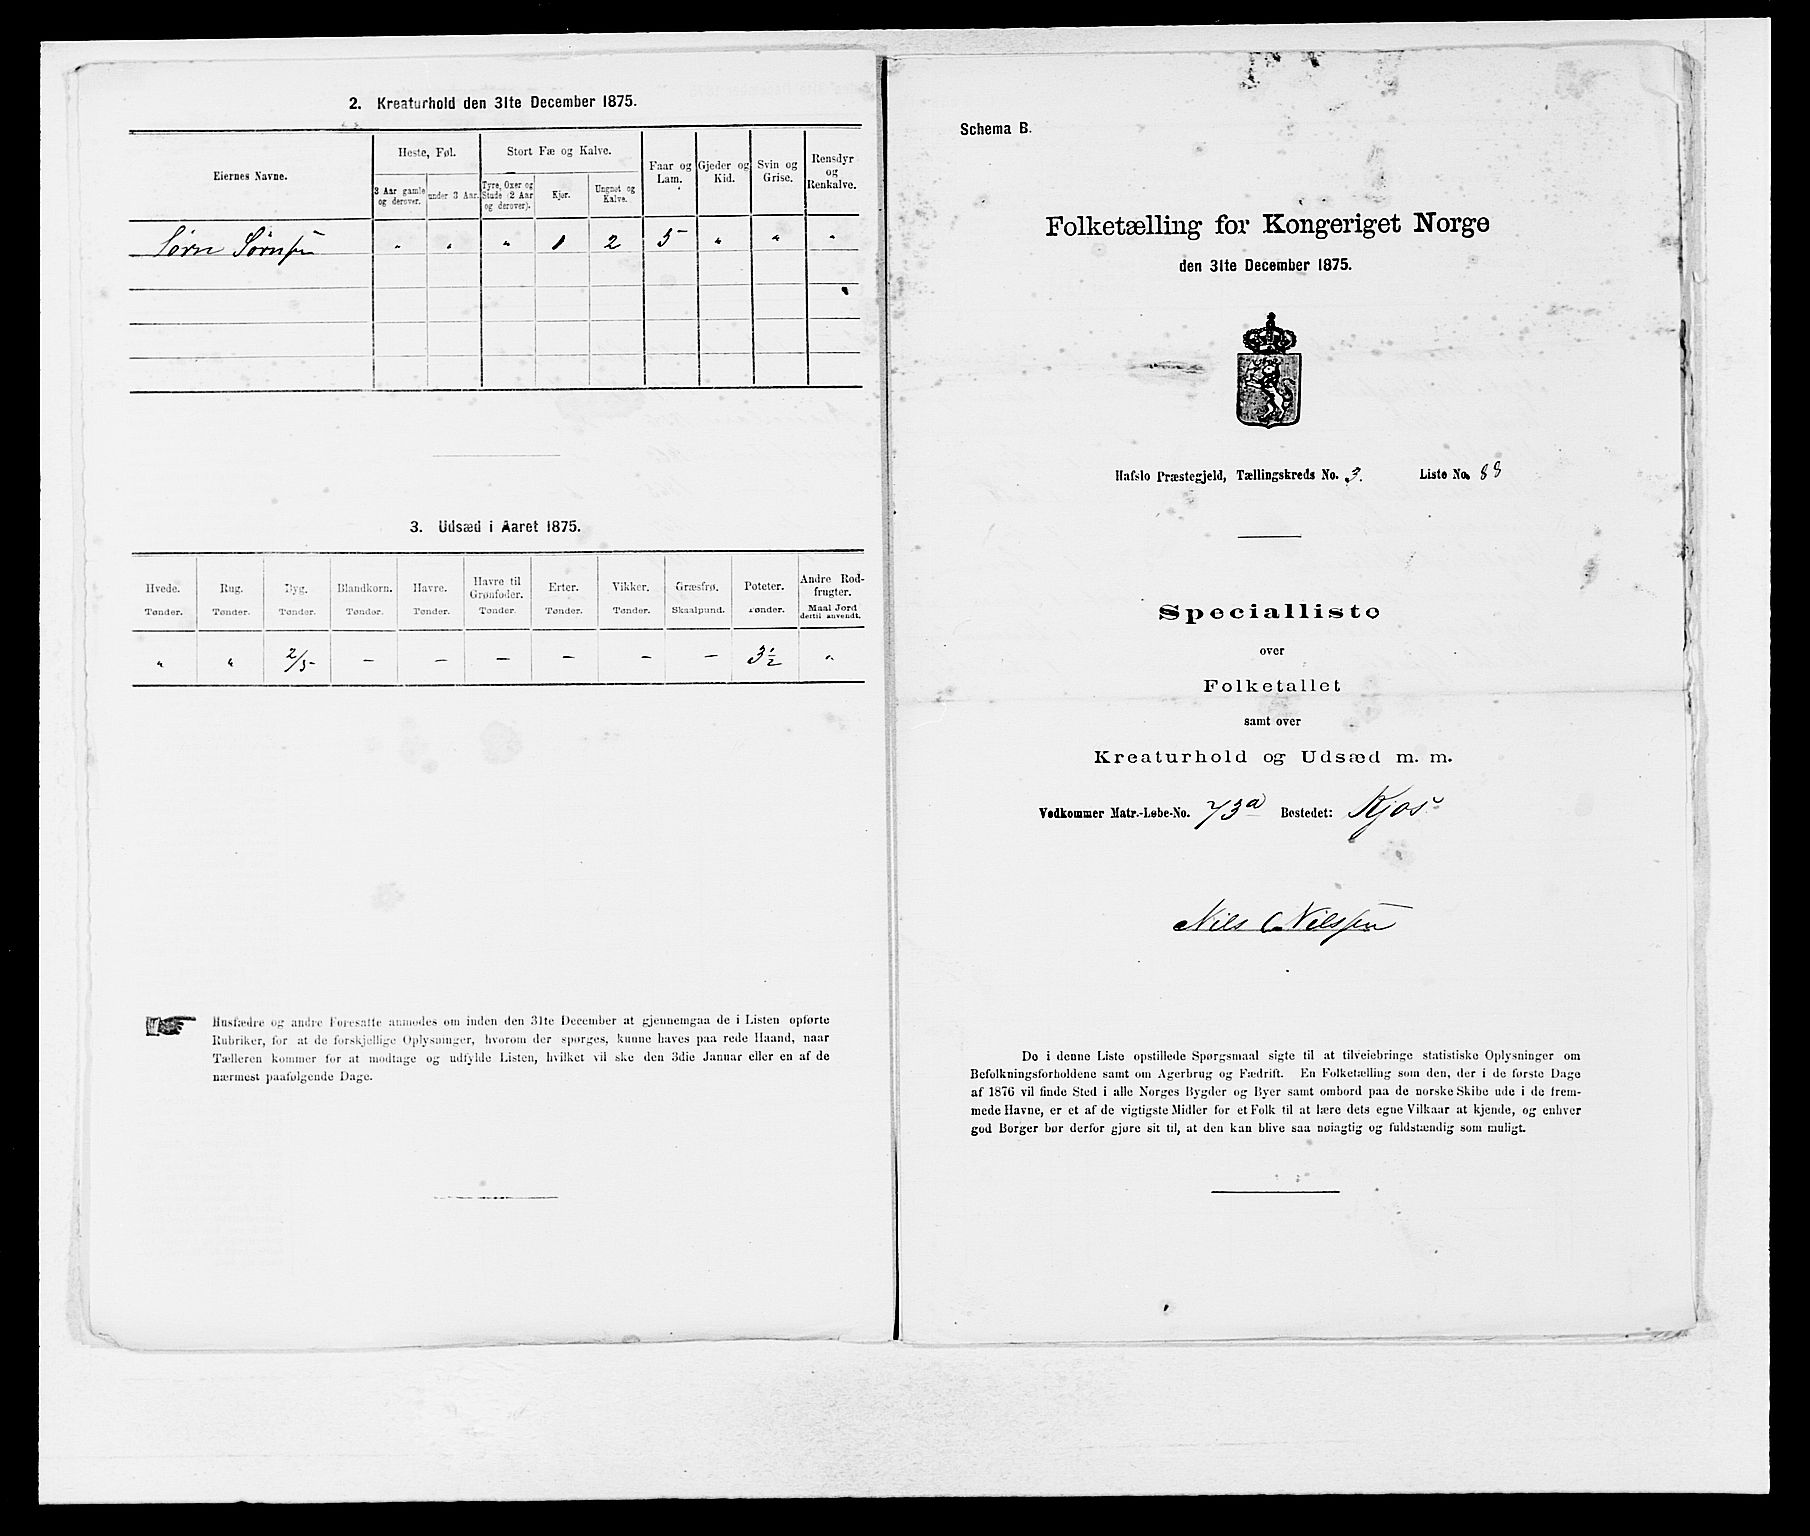 2. Kreaturhold den 31te December 1875.
Eiernes Navne.
Heste, Føl.
Stort Fæ og Kalve.
Faar og Lam.
Gjeder og Kid.
Svin og Grise.
Rensdyr og Renkalve.
3 Aar gamle og derover.
under 3 Aar.
Tyre, Oxer og Stude (2 Aar og derover).
Kjør.
Ungnøt og Kalve.
Sørn Sørnsen " " " 1 2 5 " " "
3. Udsæd i Aaret 1875.
Hvede. Rug. Byg. Blandkorn. Havre. Havre til Grønfoder. Erter. Vikker. Græsfrø. Poteter. Andre Rodfrugter.
Tønder. Tønder. Tønder. Tønder. Tønder. Tønder. Tønder. Tønder. Skaalpund. Tønder. Maal Jord dertil anvendt.
" " 2/5 – – – – – – 3 1/2 "
Husfædre og andre Foresatte anmodes om inden den 31te December at gjennemgaa de i Listen opførte
Rubriker, for at de forskjellige Oplysninger, hvorom der spørges, kunne haves paa rede Haand, naar
Tælleren kommer for at modtage og udfylde Listen, hvilket vil ske den 3die Januar eller en af de
nærmest paafølgende Dage.
Schema B.
Folketælling for Kongeriget Norge
den 31te December 1875.
Hafslo Præstegjeld, Tællingskreds No. 3. Liste No. 88
Specialliste
over
Folketallet
samt over
Kreaturhold og Udsæd m. m.
Vedkommer Matr.-Løbe-No. 73a Bostedet: Kjos
Nils Nilssen
De i denne Liste opstillede Spørgsmaal sigte til at tilveiebringe statistiske Oplysninger om
Befolkningsforholdene samt om Agerbrug og Fædrift. En Folketælling som den, der i de første Dage
af 1876 vil finde Sted i alle Norges Bygder og Byer samt ombord paa de norske Skibe ude i de frem-
mede Havne, er et af de vigtigste Midler for et Folk til at lære dets egne Vilkaar at kjende, og enhver
god Borger bør derfor gjøre sit til, at den kan blive saa nøiagtig og fuldstændig som muligt.